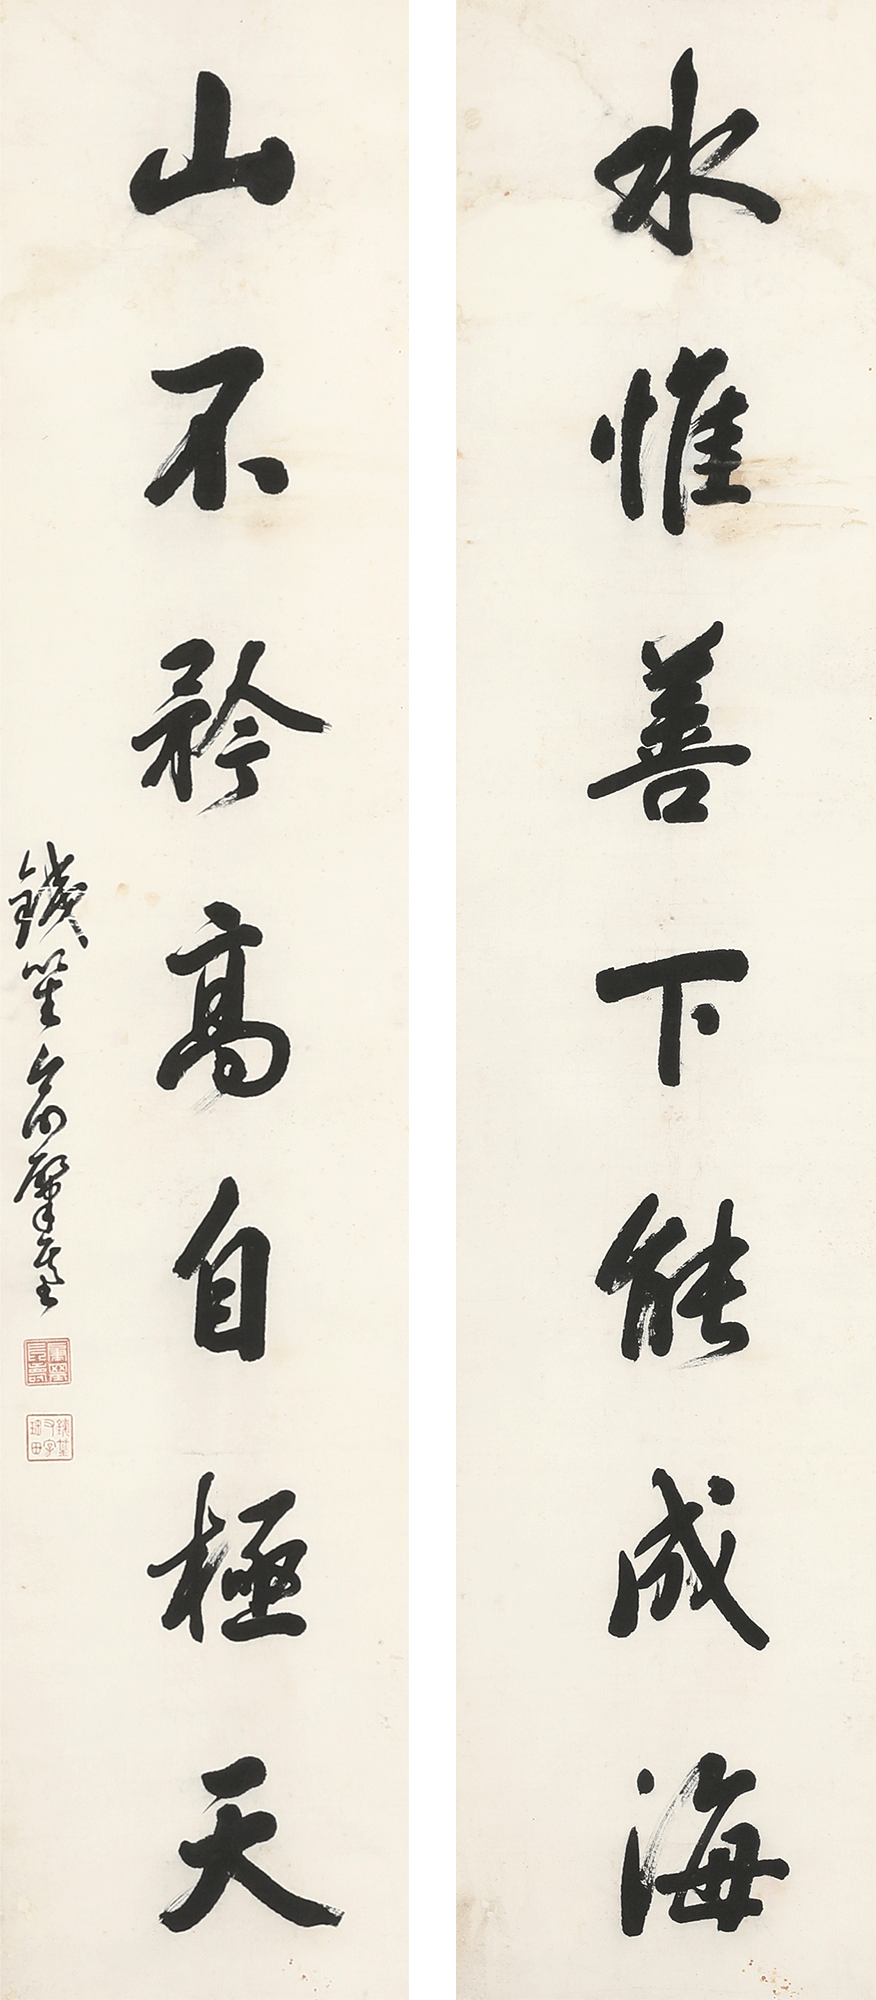 水惟善下能成海
山不矜高自極天
鐵笙